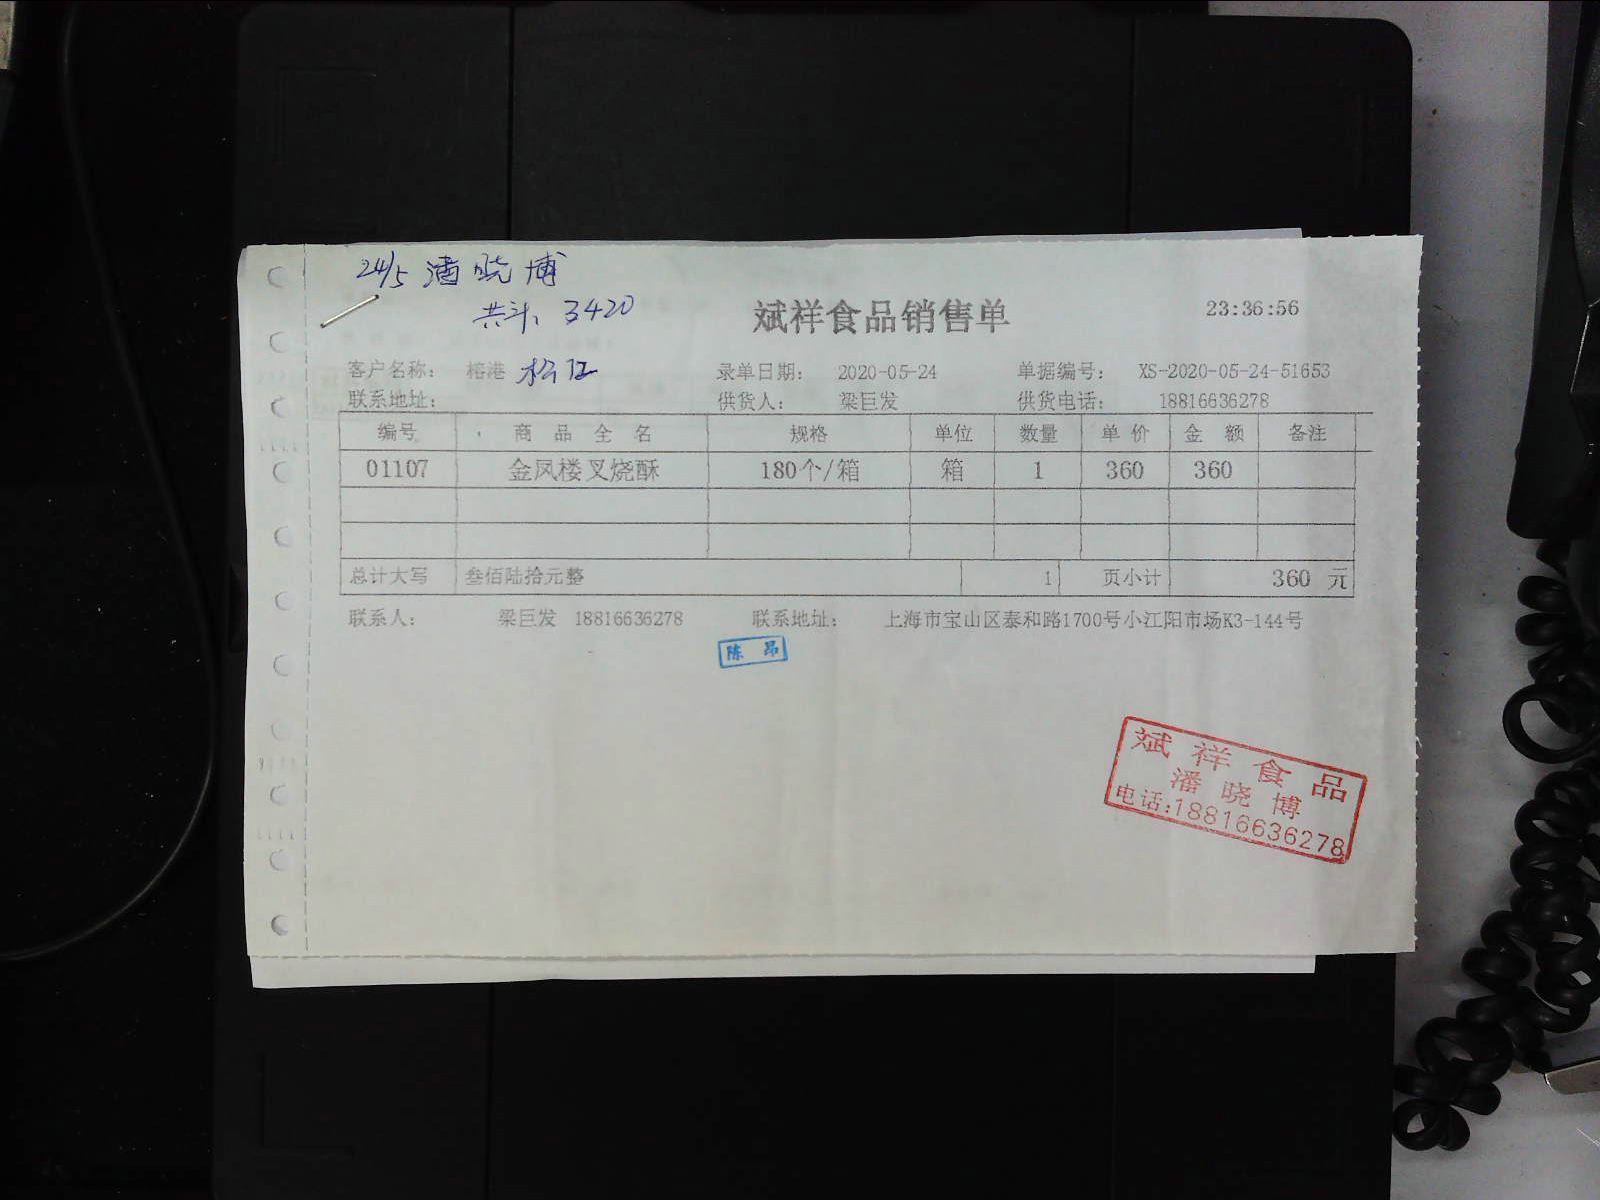 24/5 潘晓博
共计 3420
斌祥食品销售单 23:36:56
客户名称: 榕港 松江 录单日期: 2020-05-24 单据编号: XS-2020-05-24-51653
联系地址: 供货人: 梁巨发 供货电话: 18816636278
编号 商品全名 规格 单位 数量 单价 金额 备注
01107 金凤楼叉烧酥 180个/箱 箱 1 360 360
总计大写 叁佰陆拾元整 1 页小计 360 元
联系人: 梁巨发 18816636278 联系地址: 上海市宝山区泰和路1700号小江阳市场K3-144号
陈昂
斌祥食品
潘晓博
电话:18816636278